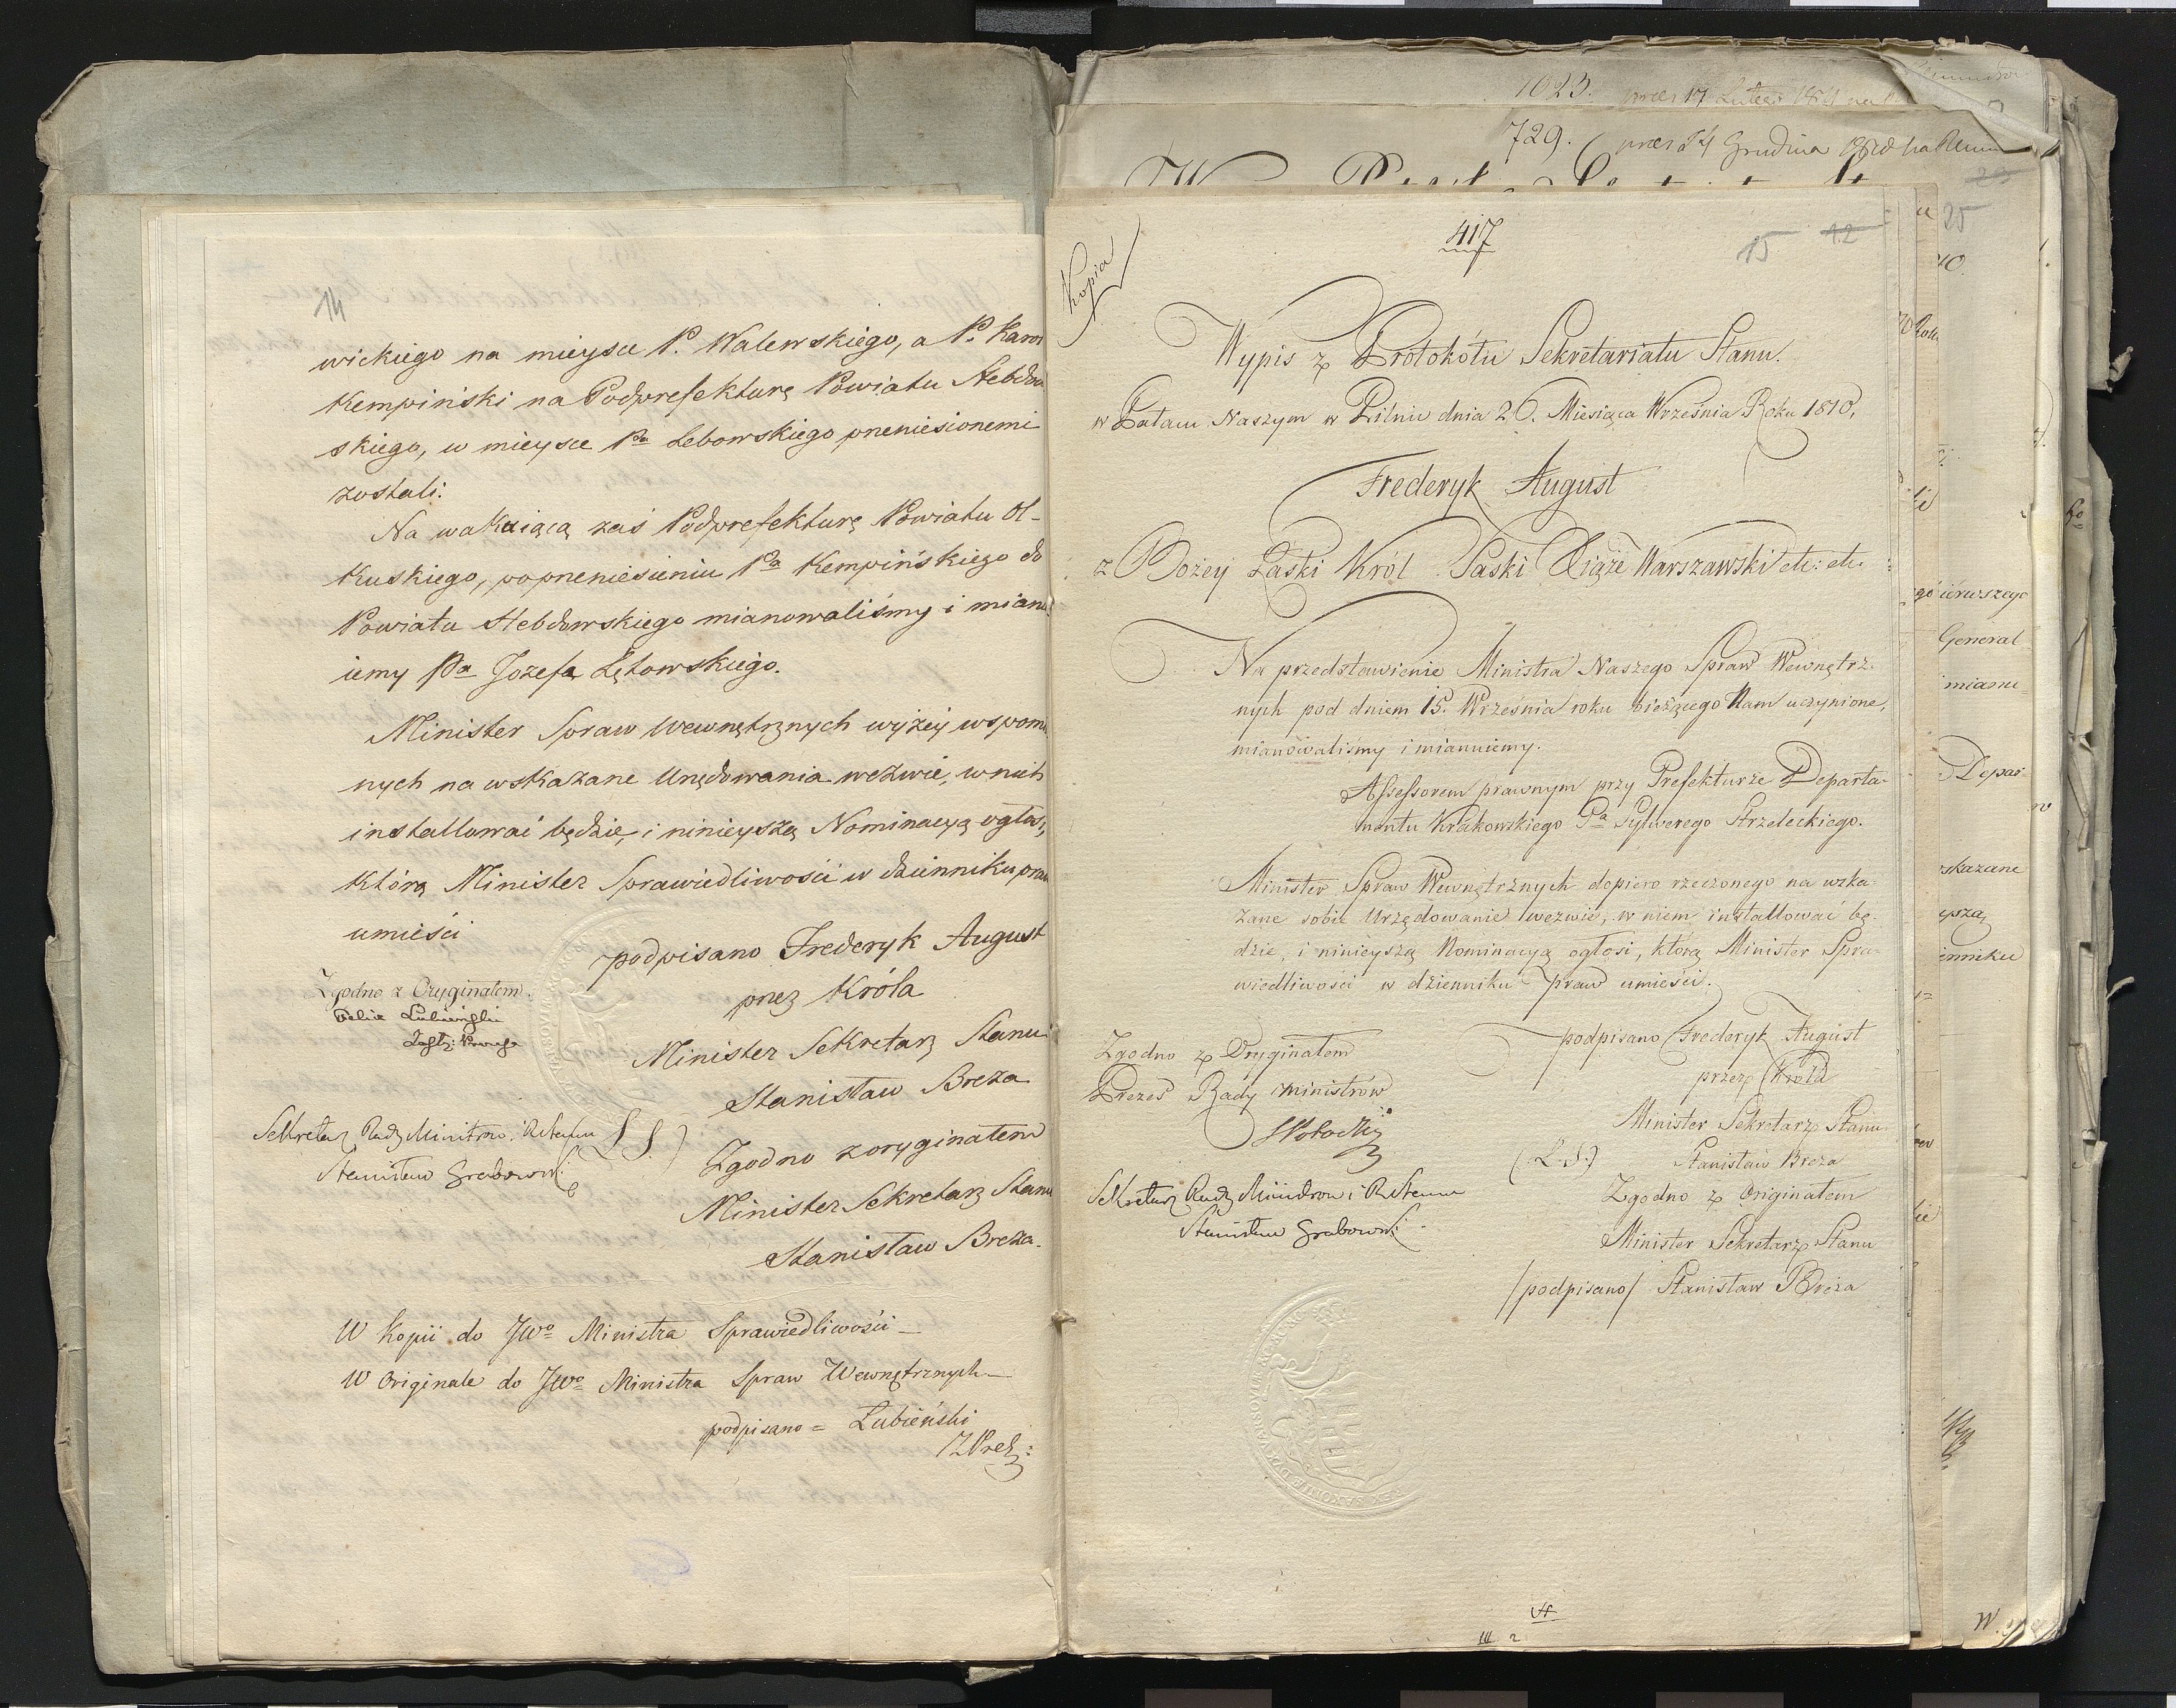 14
wickiego na mieysce P. Walewskiego, a P. Karol
Kempiński na Podprefekturę Powiatu Hebdow
skiego, w mieysce Pa Lebowskiego przeniesionemi
zostali.
Na wakuiącą zaś Podprefekturę Powiatu Ol-
kuskiego, po przeniesieniu Pa Kempińskiego do
Powiatu Hebdowskiego mianowaliśmy i mianu
iemy Pa Jozefa Łętowskiego.
Minister Spraw Wewnętrznych wyżey wspom
nych na wskazane Urzędowania wezwie, w nich
installować będzie, i ninieyszą Nominacyą ogłosi,
którą Minister Sprawiedliwości w dzienniku praw
umieści
podpisano Frederyk August
przez Króla
Minister Sekretarz Stanu
Stanisław Breza
Zgodno z Oryginałem
Felix Lubieński
Sekretarz Rady Ministrów i R. Stanu
Stanisław Grabowski
(L.S.)
Zgodno z oryginałem
Minister Sekretarz Stanu
Stanisław Breza.
W Kopii do JWo Ministra Sprawiedliwości
W Originale do JWo Ministra Spraw Wewnętrznych
podpisano = Łubieński
1023.
729. prez 24 Grudnia 1810
417
15 12
Kopia
Wypis z Protokółu Sekretariatu Stanu.
w Pałacu Naszym w Pilniz dnia 26. Miesiąca Września Roku 1810.
Frederyk August
z Bożey Łaski Król Saski Xiąże Warszawski etc: etc:
Na przedstawienie Ministra Naszego Spraw Wewnętrz-
nych pod dniem 15. Września roku bieżącego Nam uczynione,
mianowaliśmy i mianuiemy.
Assessorem prawnym przy Prefekturze Departa-
mentu Krakowskiego Pa Sylwerego Strzeleckiego.
Minister Spraw Wewnętrznych dopiero rzeczonego na wzka-
zane sobie Urzędowanie wezwie, w niem installować bę-
dzie, i ninieyszą Nominacyą ogłosi, którą Minister Spra-
wiedliwości w dzienniku praw umieści.
podpisano Frederyk August
przez Króla
Minister Sekretarz Stanu
(L.S.) Stanisław Breza
Zgodno z Originałem
Minister Sekretarz Stanu
/podpisano/ Stanisław Breza
Zgodno z Oryginałem
Prezes Rady Ministrów
S Potocki
Sekretarz Rady Ministrow i R. Stanu
Stanisław Grabowski
25
General
mianu-
Depar-
wskazane